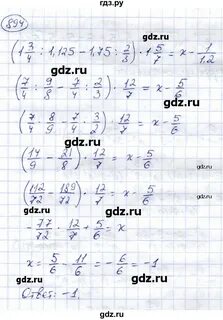 894
(1 3/4 : 1,125 - 1,75 : 2/3) · 1 5/7 = x - 1/1,2
(7/4 : 9/8 - 7/4 : 2/3) · 12/7 = x - 5/6
(7/4 · 8/9 - 7/4 · 3/2) · 12/7 = x - 5/6
(14/9 - 21/8) · 12/7 = x - 5/6
(112/72 - 189/72) · 12/7 = x - 5/6
- 77/72 · 12/7 + 5/6 = x
x = 5/6 - 11/6 = - 6/6 = -1
Ответ: -1.
gdz.ru